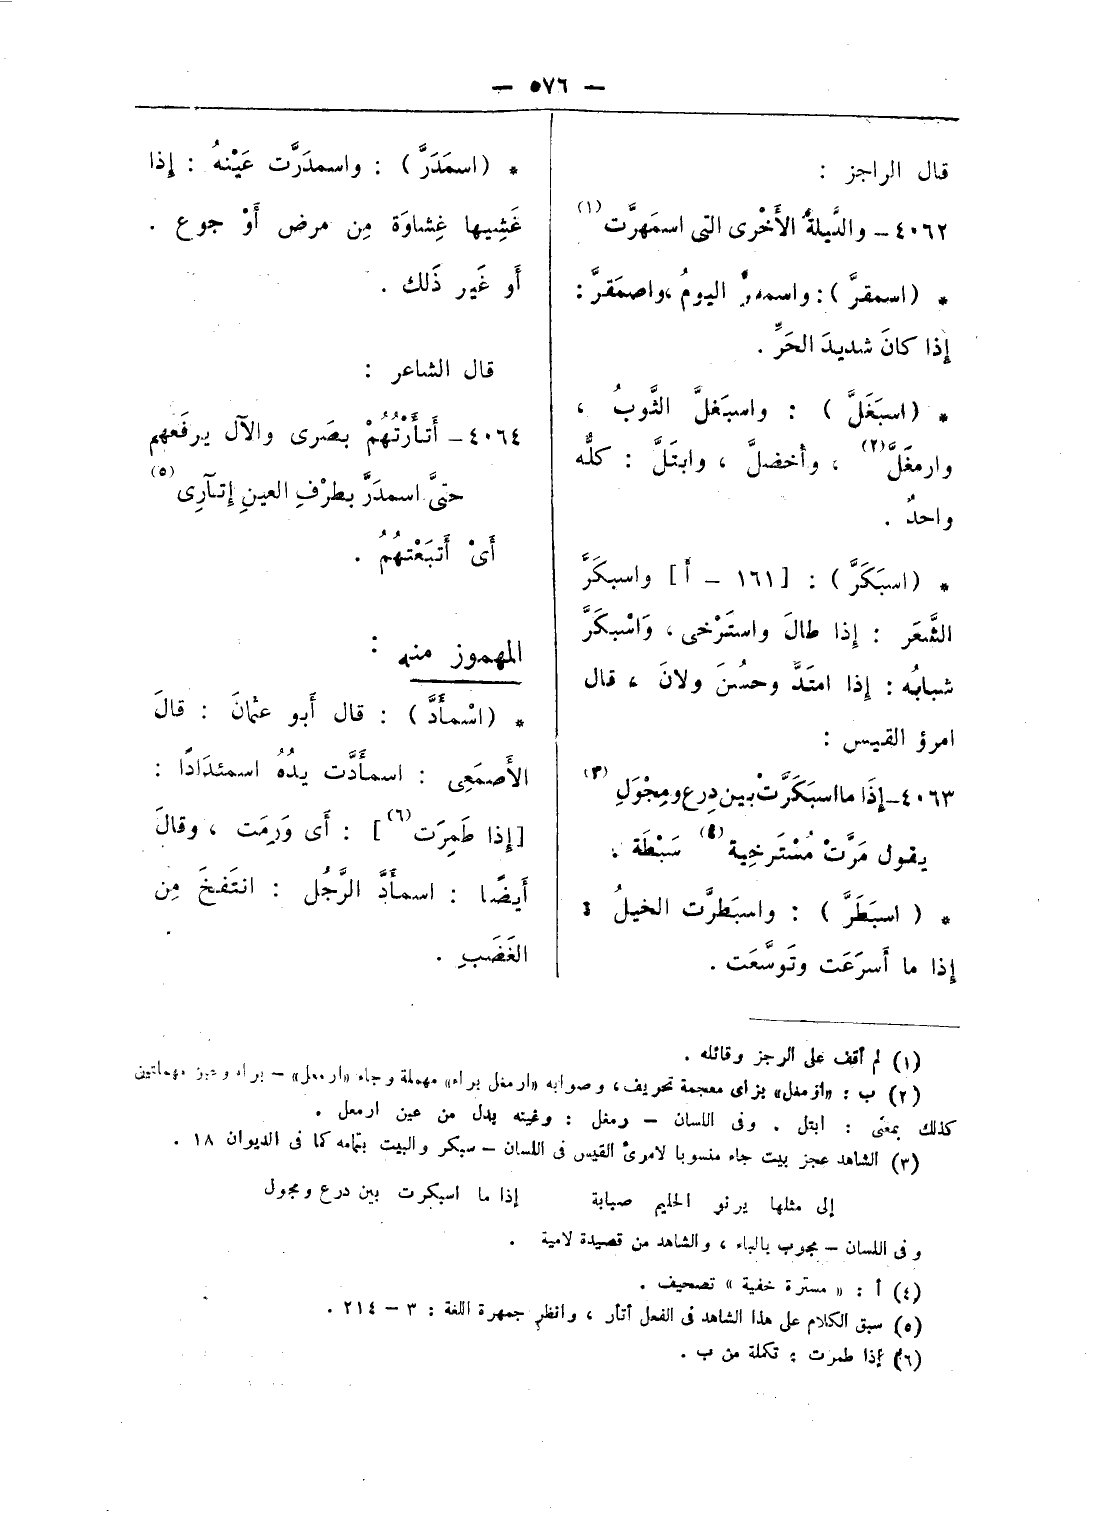 — ٥٧٦ —
قال الراجز :
٤٠٦٢ – والليلةُ الأُخْرى التى اسمَهرَّت (١)
* (اسمقرَّ) : واسمقرَّ اليومُ ، واصمَقرَّ :
إذا كانَ شديدَ الحَرِّ .
* (اسبَغَلَّ) : واسبَغلَّ الثَّوبُ ،
وارمغَلَّ (٢) ، وأخضلَّ ، وابتَلَّ : كلُّه
واحدٌ .
* (اسبَكَرَّ) : [١٦١ – أ] واسبكَرَّ
الشَّعَر : إذا طالَ واستَرْخى ، وَاسْبكَرَّ
شبابُه : إذا امتَدَّ وحسُنَ ولانَ ، قال
امرؤ القيس :
٤٠٦٣ – إذَا ما اسبَكَرَّتْ بين دِرع ومِجْوَلِ (٣)
يقول مَرَّتْ مُسْتَرخِية (٤) سَبْطَة .
* (اسبَطَرَّ) : واسبَطرَّت الخيلُ :
إذا ما أَسرَعَت وتَوسَّعَت .
* (اسمَدَرَّ) : واسمدَرَّت عَيْنهُ : إذا
غَشِيها غِشاوَة مِن مرض أَوْ جوع .
أَو غَير ذَلك .
قال الشاعر :
٤٠٦٤ – أَتأَرْتُهُمْ بصَرى والآل يرفَعهم
حتىَّ اسمدَرَّ بطرْفِ العينِ إتآرِى (٥)
أَىْ أَتبَعْتهُمُ .
المهموز منه :
* (اسْمأَدَّ) : قال أَبو عثمانَ : قالَ
الأَصمَعِى : اسمأَدَّت يدُهُ اسمئدَادًا :
[إذا طَمِرَت (٦)] : أَى وَرِمَت ، وقالَ
أَيضًا : اسمأَدَّ الرَّجُل : انتَفخَ مِن
الغَضَبِ .
(١) لم أقف على الرجز وقائله .
(٢) ب : «ازمغل» بزاى معجمة تحريف ، وصوابه «ارمغل براء» مهملة وجاء «ارمعل» – براء وعين مهملتين
كذلك بمعنى : ابتل . وفى اللسان – رمغل : وغينه بدل من عين ارمعل .
(٣) الشاهد عجز بيت جاء منسوبا لامرئ القيس فى اللسان – سبكر والبيت بتمامه كما فى الديوان ١٨ .
إلى مثلها يرنو الحليم صبابة إذا ما اسبكرت بين درع ومجول
وفى اللسان – مجوب بالباء ، والشاهد من قصيدة لامية .
(٤) أ : « مسترة خفية » تصحيف .
(٥) سبق الكلام على هذا الشاهد فى الفعل أتأر ، وانظر جمهرة اللغة : ٣ – ٢١٤ .
(٦) إذا طمرت : تكملة من ب .